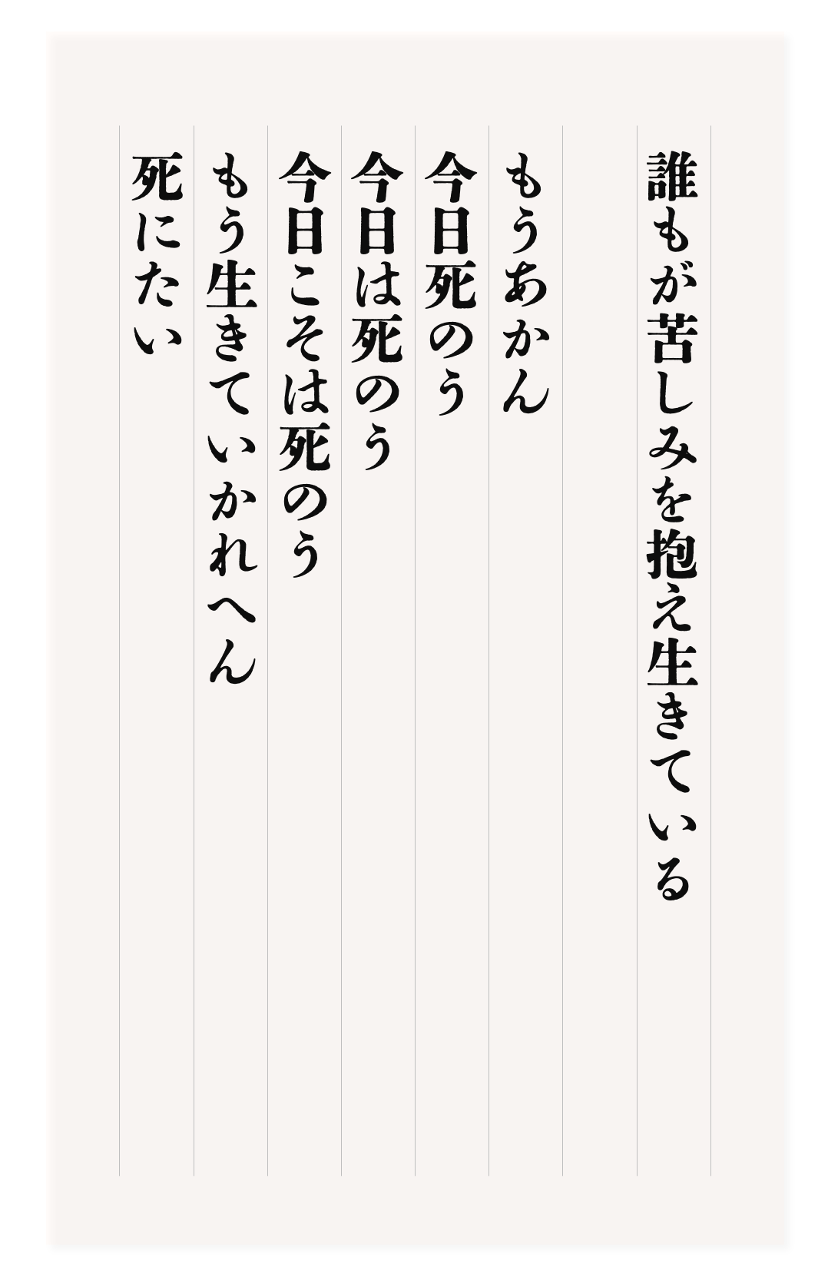 誰もが苦しみを抱え生きている
もうあかん
今日死のう
今日は死のう
今日こそは死のう
もう生きていかれへん
死にたい